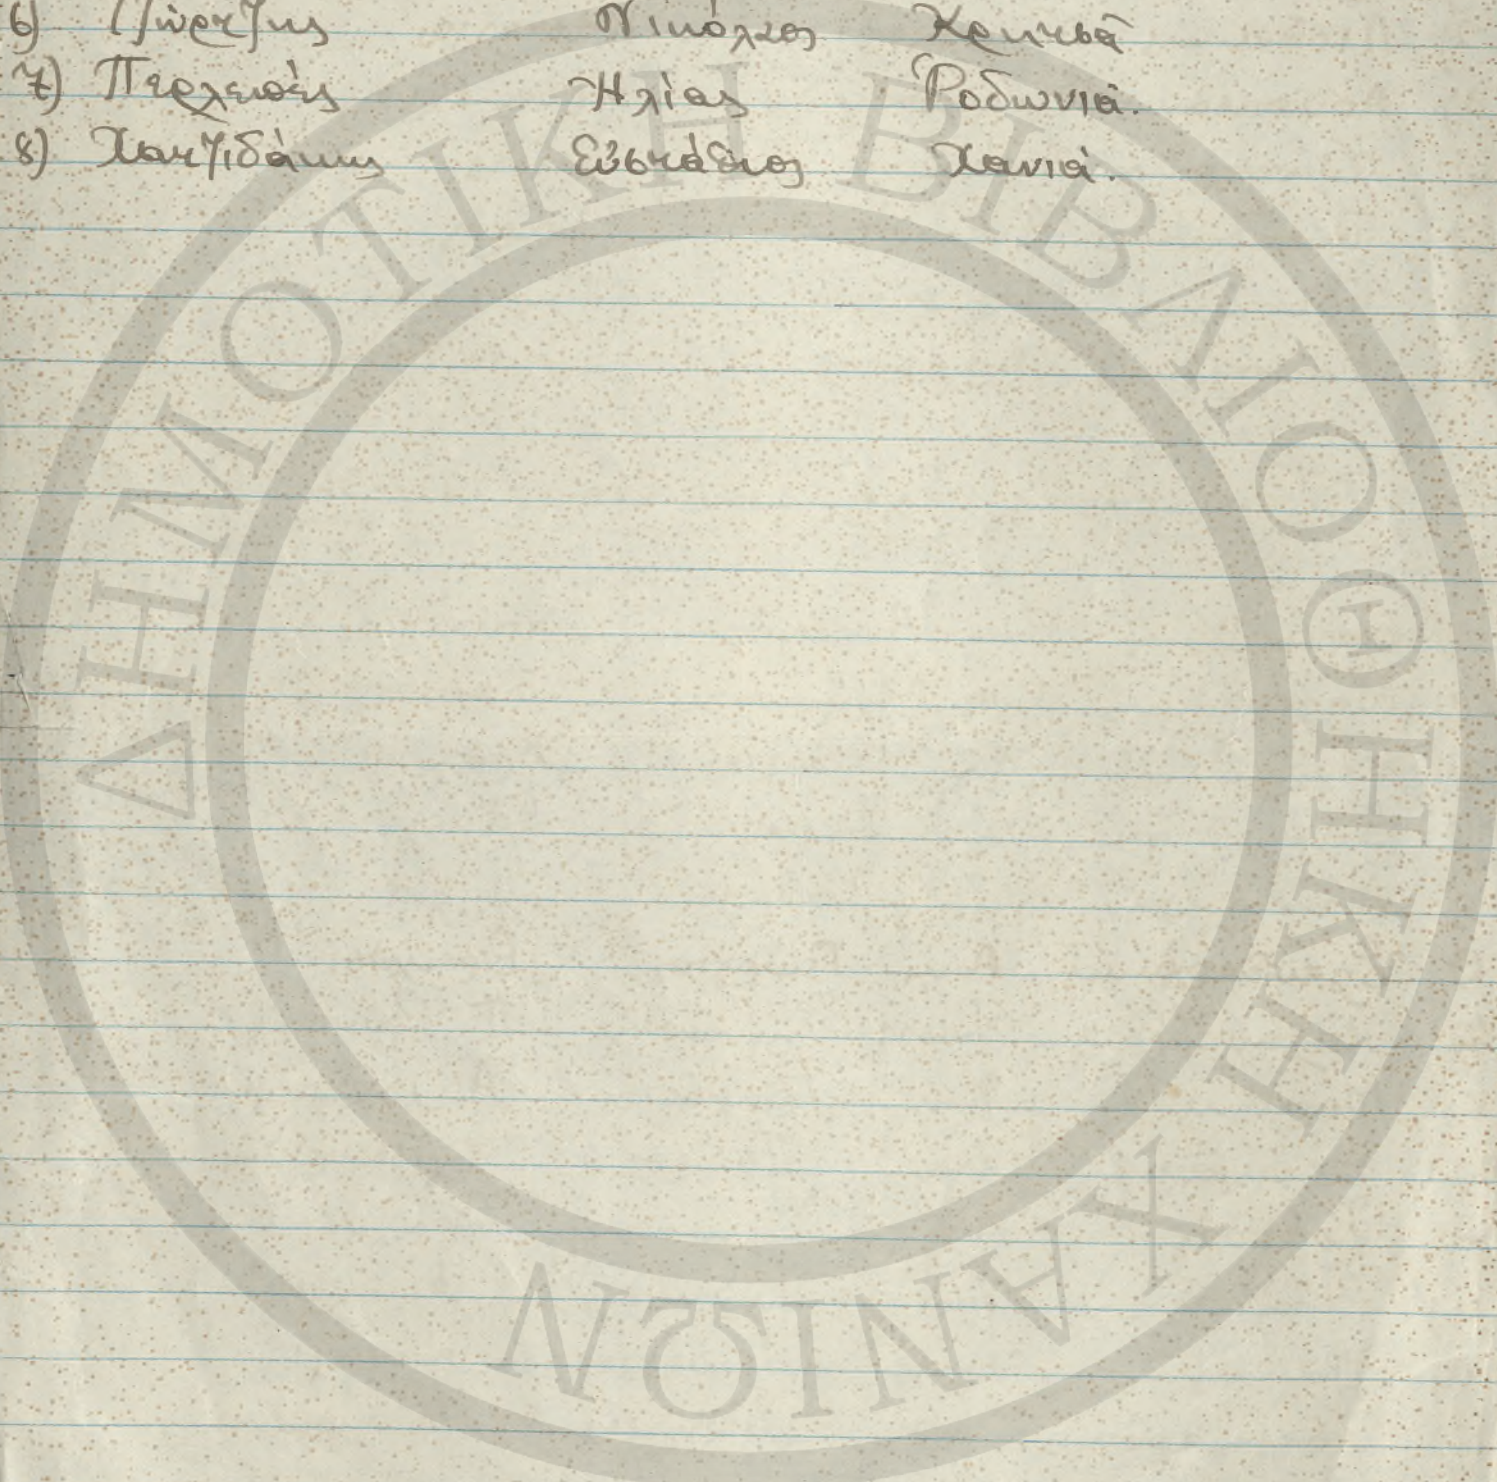 6) Τζώρτζης Νικόλαος Κριτσᾶ
7) Περλεπές Ἠλίας Ῥοδωνιά.
8) Χατζιδάκης Εὐστάθιος Χανιά.
ΔΗΜΟΤΙΚΗ ΒΙΒΛΙΟΘΗΚΗ ΧΑΝΙΩΝ